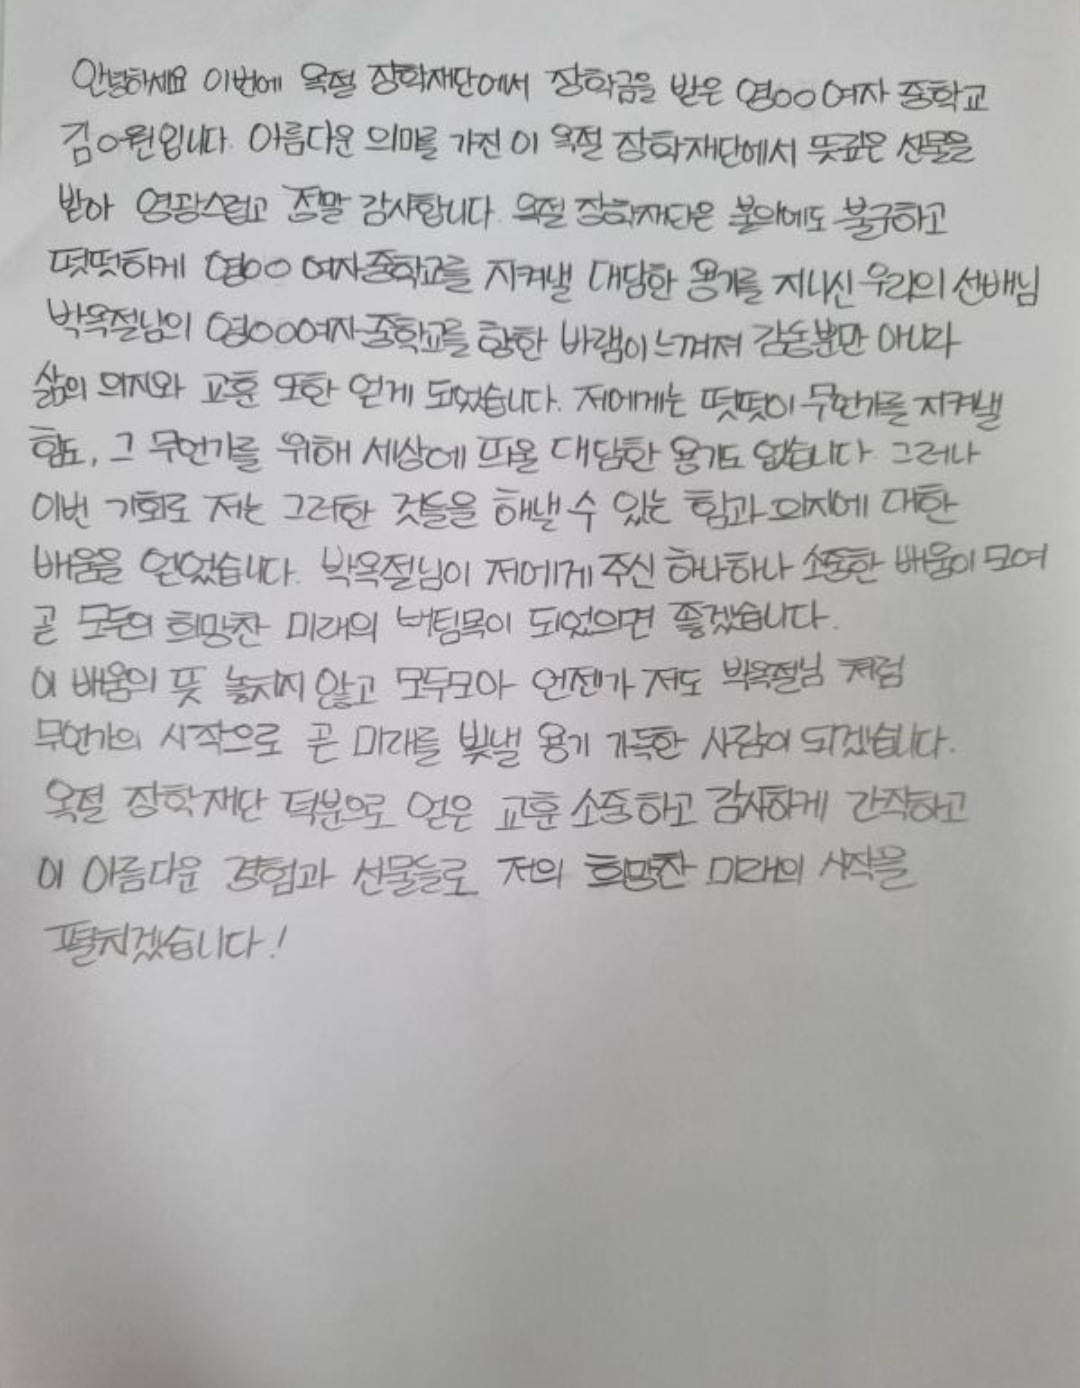 안녕하세요 이번에 옥절 장학재단에서 장학금을 받은 영OO여자 중학교
김O원입니다. 아름다운 의미를 가진 이 옥절 장학재단에서 뜻깊은 선물을
받아 영광스럽고 정말 감사합니다. 옥절 장학재단은 불의에도 불구하고
떳떳하게 영OO 여자중학교를 지켜낼 대담한 용기를 지니신 우리의 선배님
박옥절님의 영OO여자중학교를 향한 바램이 느껴져 감동뿐만 아니라
삶의 의지와 교훈 또한 얻게 되었습니다. 저에게는 떳떳이 무언가를 지켜낼
힘도, 그 무언가를 위해 세상에 띄울 대담한 용기도 없습니다. 그러나
이번 기회로 저는 그러한 것들을 해낼 수 있는 힘과 의지에 대한
배움을 얻었습니다. 박옥절님이 저에게 주신 하나하나 소중한 배움이 모여
곧 모두의 희망찬 미래의 버팀목이 되었으면 좋겠습니다.
이 배움의 뜻 놓치지 않고 모두모아 언젠가 저도 박옥절님 처럼
무언가의 시작으로 곧 미래를 빛낼 용기 가득한 사람이 되겠습니다.
옥절 장학재단 덕분으로 얻은 교훈 소중하고 감사하게 간직하고
이 아름다운 경험과 선물들로 저의 희망찬 미래의 시작을
펼치겠습니다!